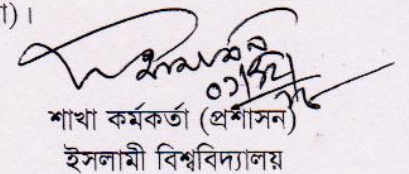 া)।
শাখা কর্মকর্তা (প্রশাসন)
ইসলামী বিশ্ববিদ্যালয়